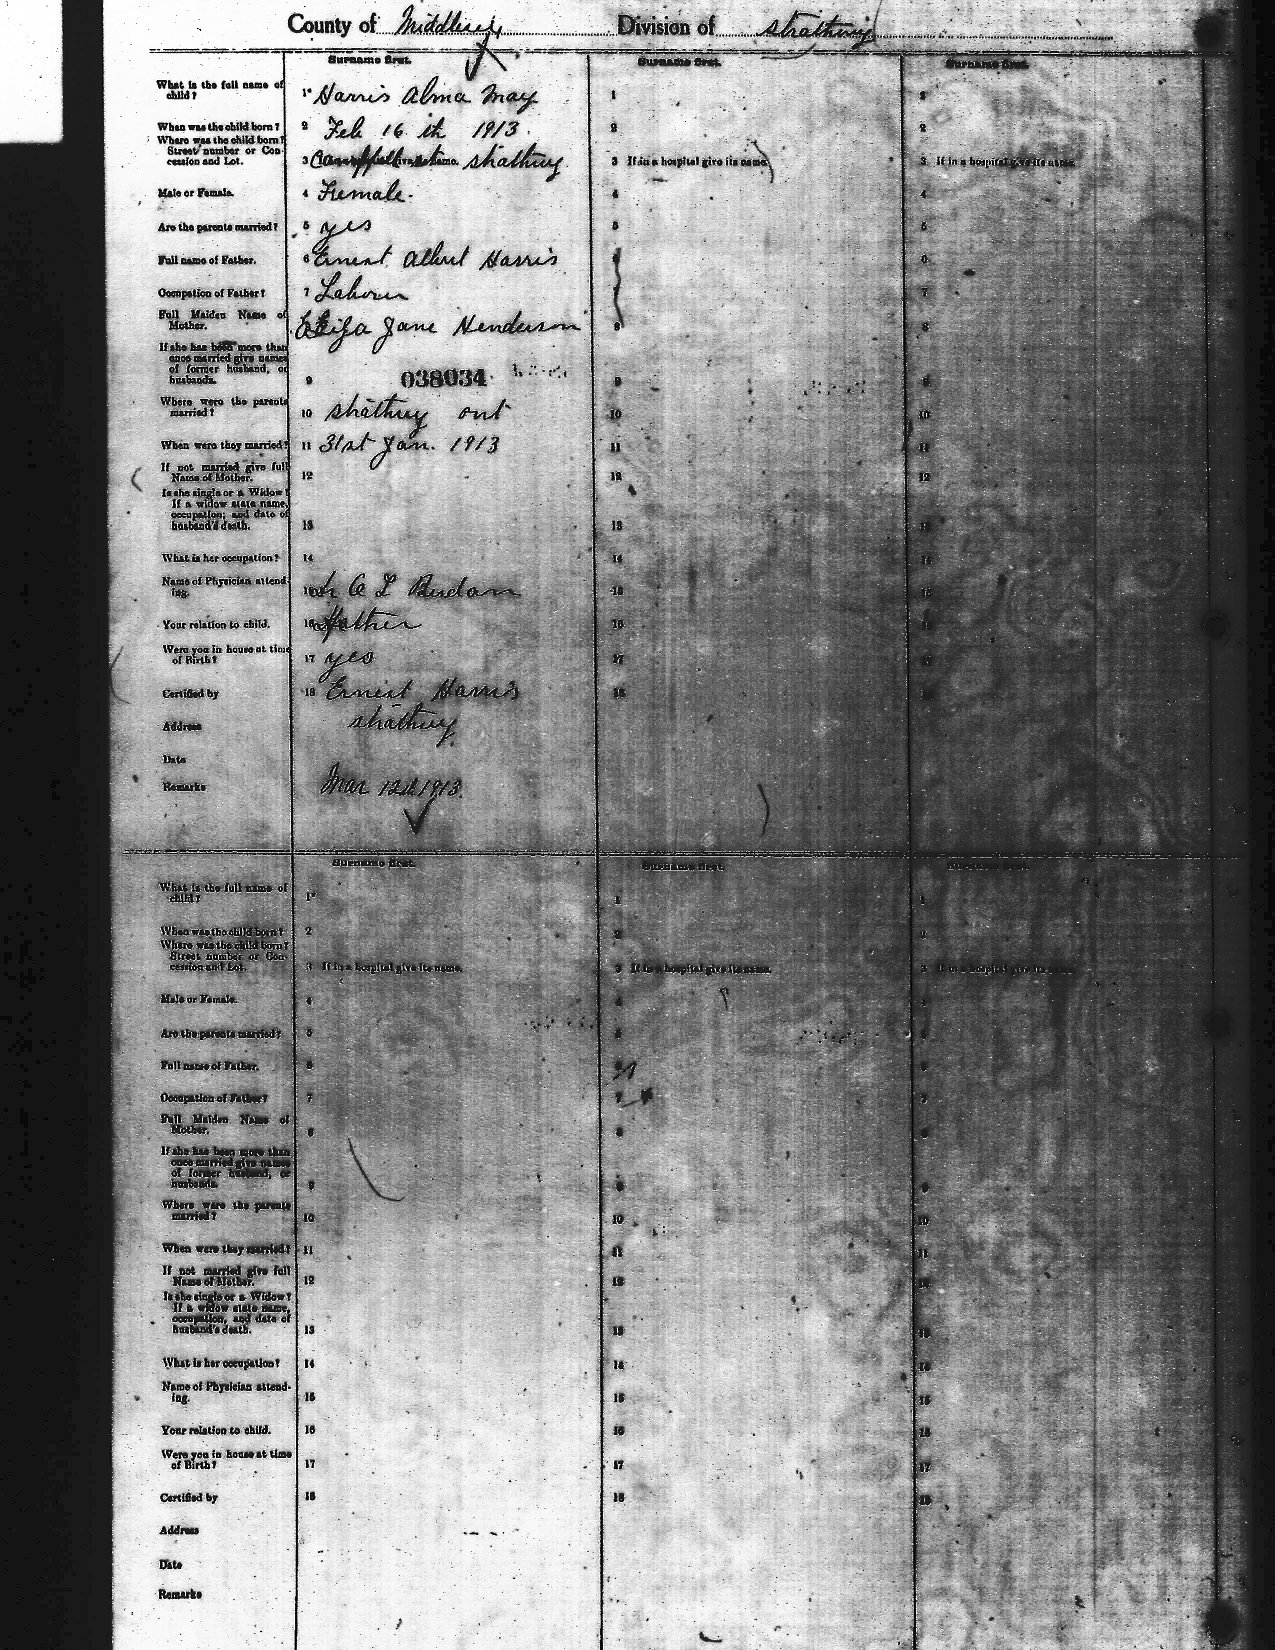 County of Middlesex Division of Strathroy
Surname first. Surname first. Surname first.
What is the full name of
child? 1 Harris Alma May 1 1
When was the child born? 2 Feb 16 th 1913. 2 2
Where was the child born?
Street number or Con-
cession and Lot. 3 Campbell st Strathroy 3 If in a hospital give its name. 3 If in a hospital give its name.
Male or Female. 4 Female. 4 4
Are the parents married? 5 yes 5 5
Full name of Father. 6 Ernest Albert Harris 6
Occupation of Father? 7 Laborer 7
Full Maiden Name of
Mother. Eliza Jane Henderson 8 8
If she has been more than
once married give names
of former husband, or
husbands. 9 038034 9 9
Where were the parents
married? 10 Strathroy ont 10 10
When were they married? 11 31st Jan. 1913 11 11
If not married give full
Name of Mother. 12 12 12
Is she single or a Widow?
If a widow state name,
occupation; and date of
husband's death. 13 13 13
What is her occupation? 14 14 14
Name of Physician attend-
ing. 15 15
Your relation to child. 16 Father 16 16
Were you in house at time
of Birth? 17 yes 17 17
Certified by 18 Ernest Harris 18
Address Strathroy
Date
Remarks Mar 12th 1913.
Surname first. Surname first. Surname first.
What is the full name of
child? 1 1 1
When was the child born? 2 2 2
Where was the child born?
Street number or Con-
cession and Lot. 3 If in a hospital give its name. 3 If in a hospital give its name. 3 If in a hospital give its name.
Male or Female. 4 4
Are the parents married? 5 5
Full name of Father. 6 6
Occupation of Father? 7 7 7
Full Maiden Name of
Mother. 8 8 8
If she has been more than
once married give names
of former husband, or
husbands. 9 9 9
Where were the parents
married? 10 10 10
When were they married? 11 11 11
If not married give full
Name of Mother. 12 12 12
Is she single or a Widow?
If a widow state name,
occupation, and date of
husband's death. 13 13 13
What is her occupation? 14 14 14
Name of Physician attend-
ing. 15 15 15
Your relation to child. 16 16 16
Were you in house at time
of Birth? 17 17 17
Certified by 18 18 18
Address
Date
Remarks